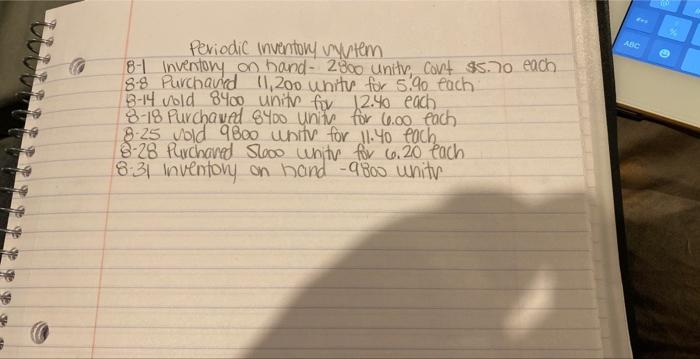 Periodic inventory system
8-1 Inventory on hand- 2800 units, cost $5.70 each
8-8 Purchased 11,200 units for 5.90 each
8-14 sold 8400 units for 12.40 each
8-18 Purchased 8400 units for 6.00 each
8-25 sold 9800 units for 11.40 each
8-28 Purchased 5600 units for 6.20 each
8-31 Inventory on hand -9800 units
ABC
%